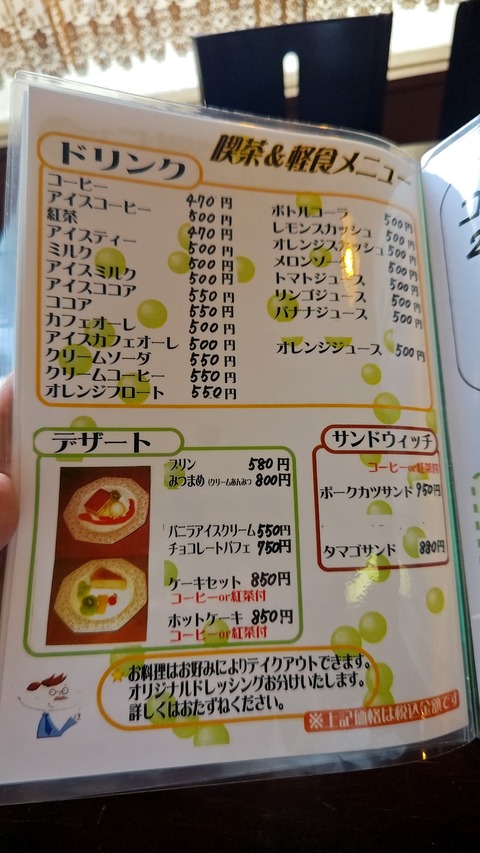 喫茶&軽食メニュー
ドリンク
コーヒー 470円
アイスコーヒー 500円
紅茶 470円
アイスティー 500円
ミルク 500円
アイスミルク 500円
アイスココア 550円
ココア 550円
カフェオーレ 500円
アイスカフェオーレ 500円
クリームソーダ 550円
クリームコーヒー 550円
オレンジフロート 550円
ボトルコーラ 500円
レモンスカッシュ 500円
オレンジスカッシュ 500円
メロンソー 500円
トマトジュース 500円
リンゴジュース 500円
バナナジュース 500円
オレンジジュース 500円
デザート
プリン 580円
みつまめ (クリームあんみつ 800円
バニラアイスクリーム 550円
チョコレートパフェ 750円
ケーキセット 850円
コーヒーor紅茶付
ホットケーキ 850円
コーヒーor紅茶付
サンドウィッチ
コーヒーor紅茶付
ポークカツサンド 950円
タマゴサンド 880円
お料理はお好みによりテイクアウトできます。
オリジナルドレッシングお分けいたします。
詳しくはおたずねください。
※上記価格は税込金額です